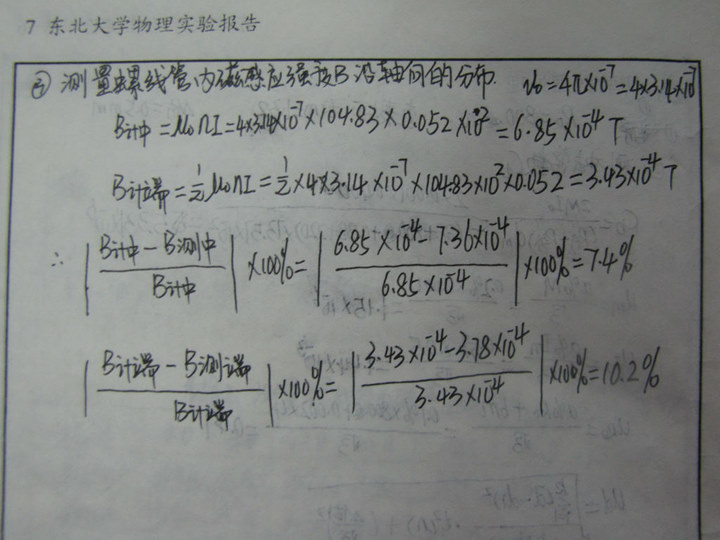 7 东北大学物理实验报告
③ 测量螺线管内磁感应强度B沿轴向的分布. μ₀=4π×10⁻⁷=4×3.14×10⁻⁷
B计中=μ₀nI=4×3.14×10⁻⁷×104.83×0.052×10²=6.85×10⁻⁴T
B计端=½μ₀nI=½×4×3.14×10⁻⁷×104.83×10²×0.052=3.43×10⁻⁴T
∴ |(B计中-B测中)/B计中|×100%=|(6.85×10⁻⁴-7.36×10⁻⁴)/6.85×10⁻⁴|×100%=7.4%
|(B计端-B测端)/B计端|×100%=|(3.43×10⁻⁴-3.78×10⁻⁴)/3.43×10⁻⁴|×100%=10.2%